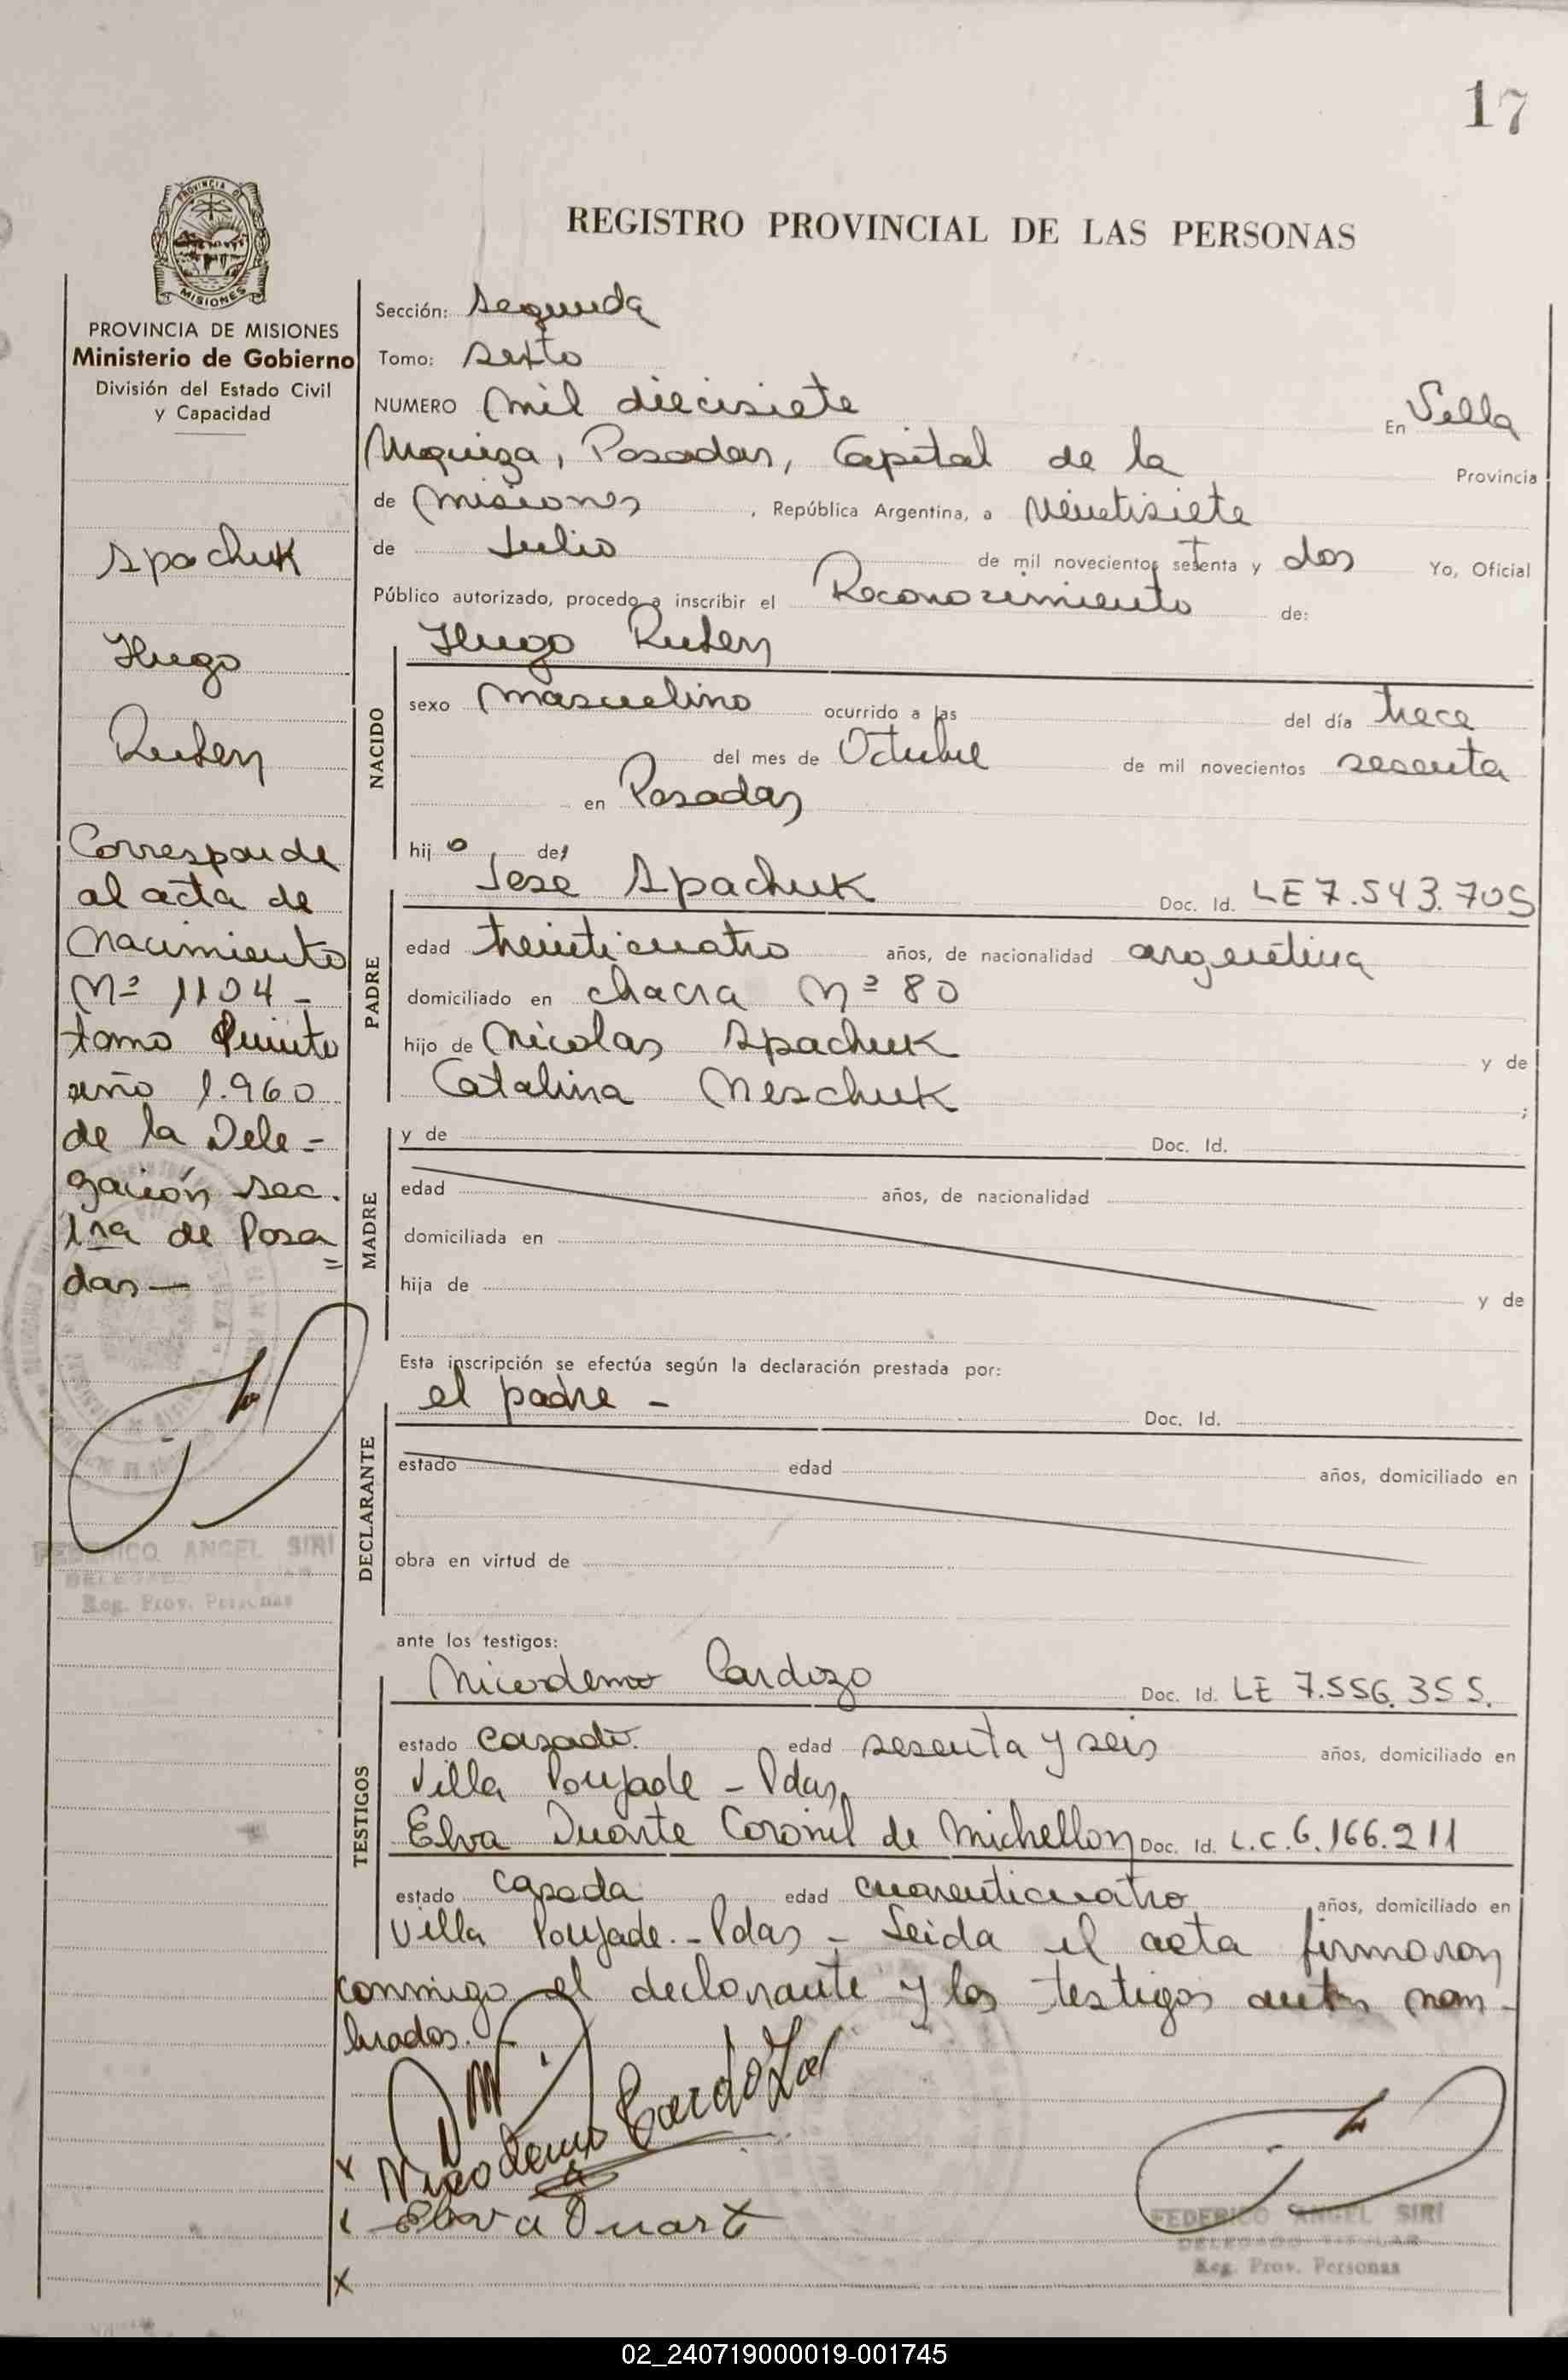 17
REGISTRO PROVINCIAL DE LAS PERSONAS
PROVINCIA DE MISIONES
PROVINCIA DE MISIONES
Ministerio de Gobierno
División del Estado Civil
y Capacidad
Spachuk
Hugo
Ruben
Corresponde
al acta de
nacimiento
Nº 1104 -
tomo Quinto
año 1.960
de la Dele -
gación sec.
1ra de Posa =
das —
FEDERICO ANGEL SIRI
DELEGADO
Reg. Prov. Personas
Sección: Segunda
Tomo: Sexto
NUMERO mil diecisiete En Villa
Urquiza, Posadas, Capital de la Provincia
de misiones, República Argentina, a veintisiete
de Julio de mil novecientos setenta y dos Yo, Oficial
Público autorizado, procedo a inscribir el Reconocimiento de:
Hugo Ruben
NACIDO
sexo masculino ocurrido a las del día trece
del mes de Octubre de mil novecientos sesenta
en Posadas
hijo de
PADRE
Jose Spachuk Doc. Id. LE 7.543.705
edad treinticuatro años, de nacionalidad argentina
domiciliado en chacra Nº 80
hijo de Nicolas Spachuk y de
Catalina Meschuk ;
MADRE
y de Doc. Id.
edad años, de nacionalidad
domiciliada en
hija de y de
Esta inscripción se efectúa según la declaración prestada por:
DECLARANTE
el padre - Doc. Id.
estado edad años, domiciliado en
obra en virtud de
ante los testigos:
TESTIGOS
Nicodemo Cardozo Doc. Id. LE 7.556.355.
estado casado. edad sesenta y seis años, domiciliado en
Villa Poujade - Pdas,
Elva Duarte Coronil de Michellon Doc. Id. L.C. 6.166.211
estado casada edad cuarenticuatro años, domiciliado en
Villa Poujade. - Pdas - Leida el acta firmaron
conmigo el declarante y los testigos antes nom -
brados.
Nicodemo Cardozo
Elva Duarte
x
FEDERICO ANGEL SIRI
DELEGADO TITULAR
Reg. Prov. Personas
02_240719000019-001745